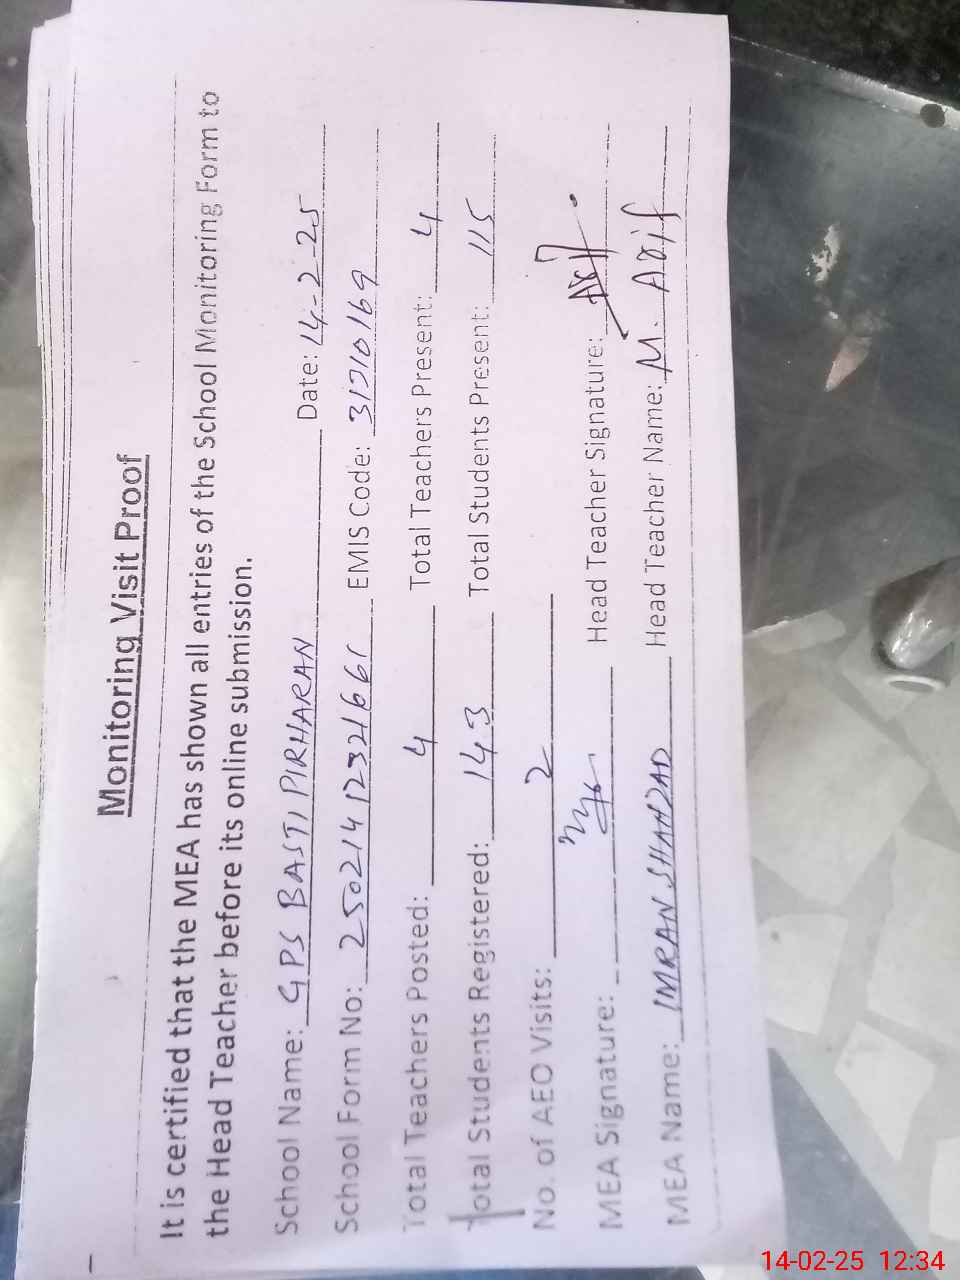 Monitoring Visit Proof
It is certified that the MEA has shown all entries of the School Monitoring Form to
the Head Teacher before its online submission.
School Name: GPS BASTI PIRHARAN Date: 14-2-25
School Form No: 25021412321661 EMIS Code: 31710169
Total Teachers Posted: 4 Total Teachers Present: 4
Total Students Registered: 143 Total Students Present: 115
No. of AEO Visits: 2
MEA Signature: Head Teacher Signature:
MEA Name: IMRAN SHAHZAD Head Teacher Name: M. Asif
14-02-25 12:34